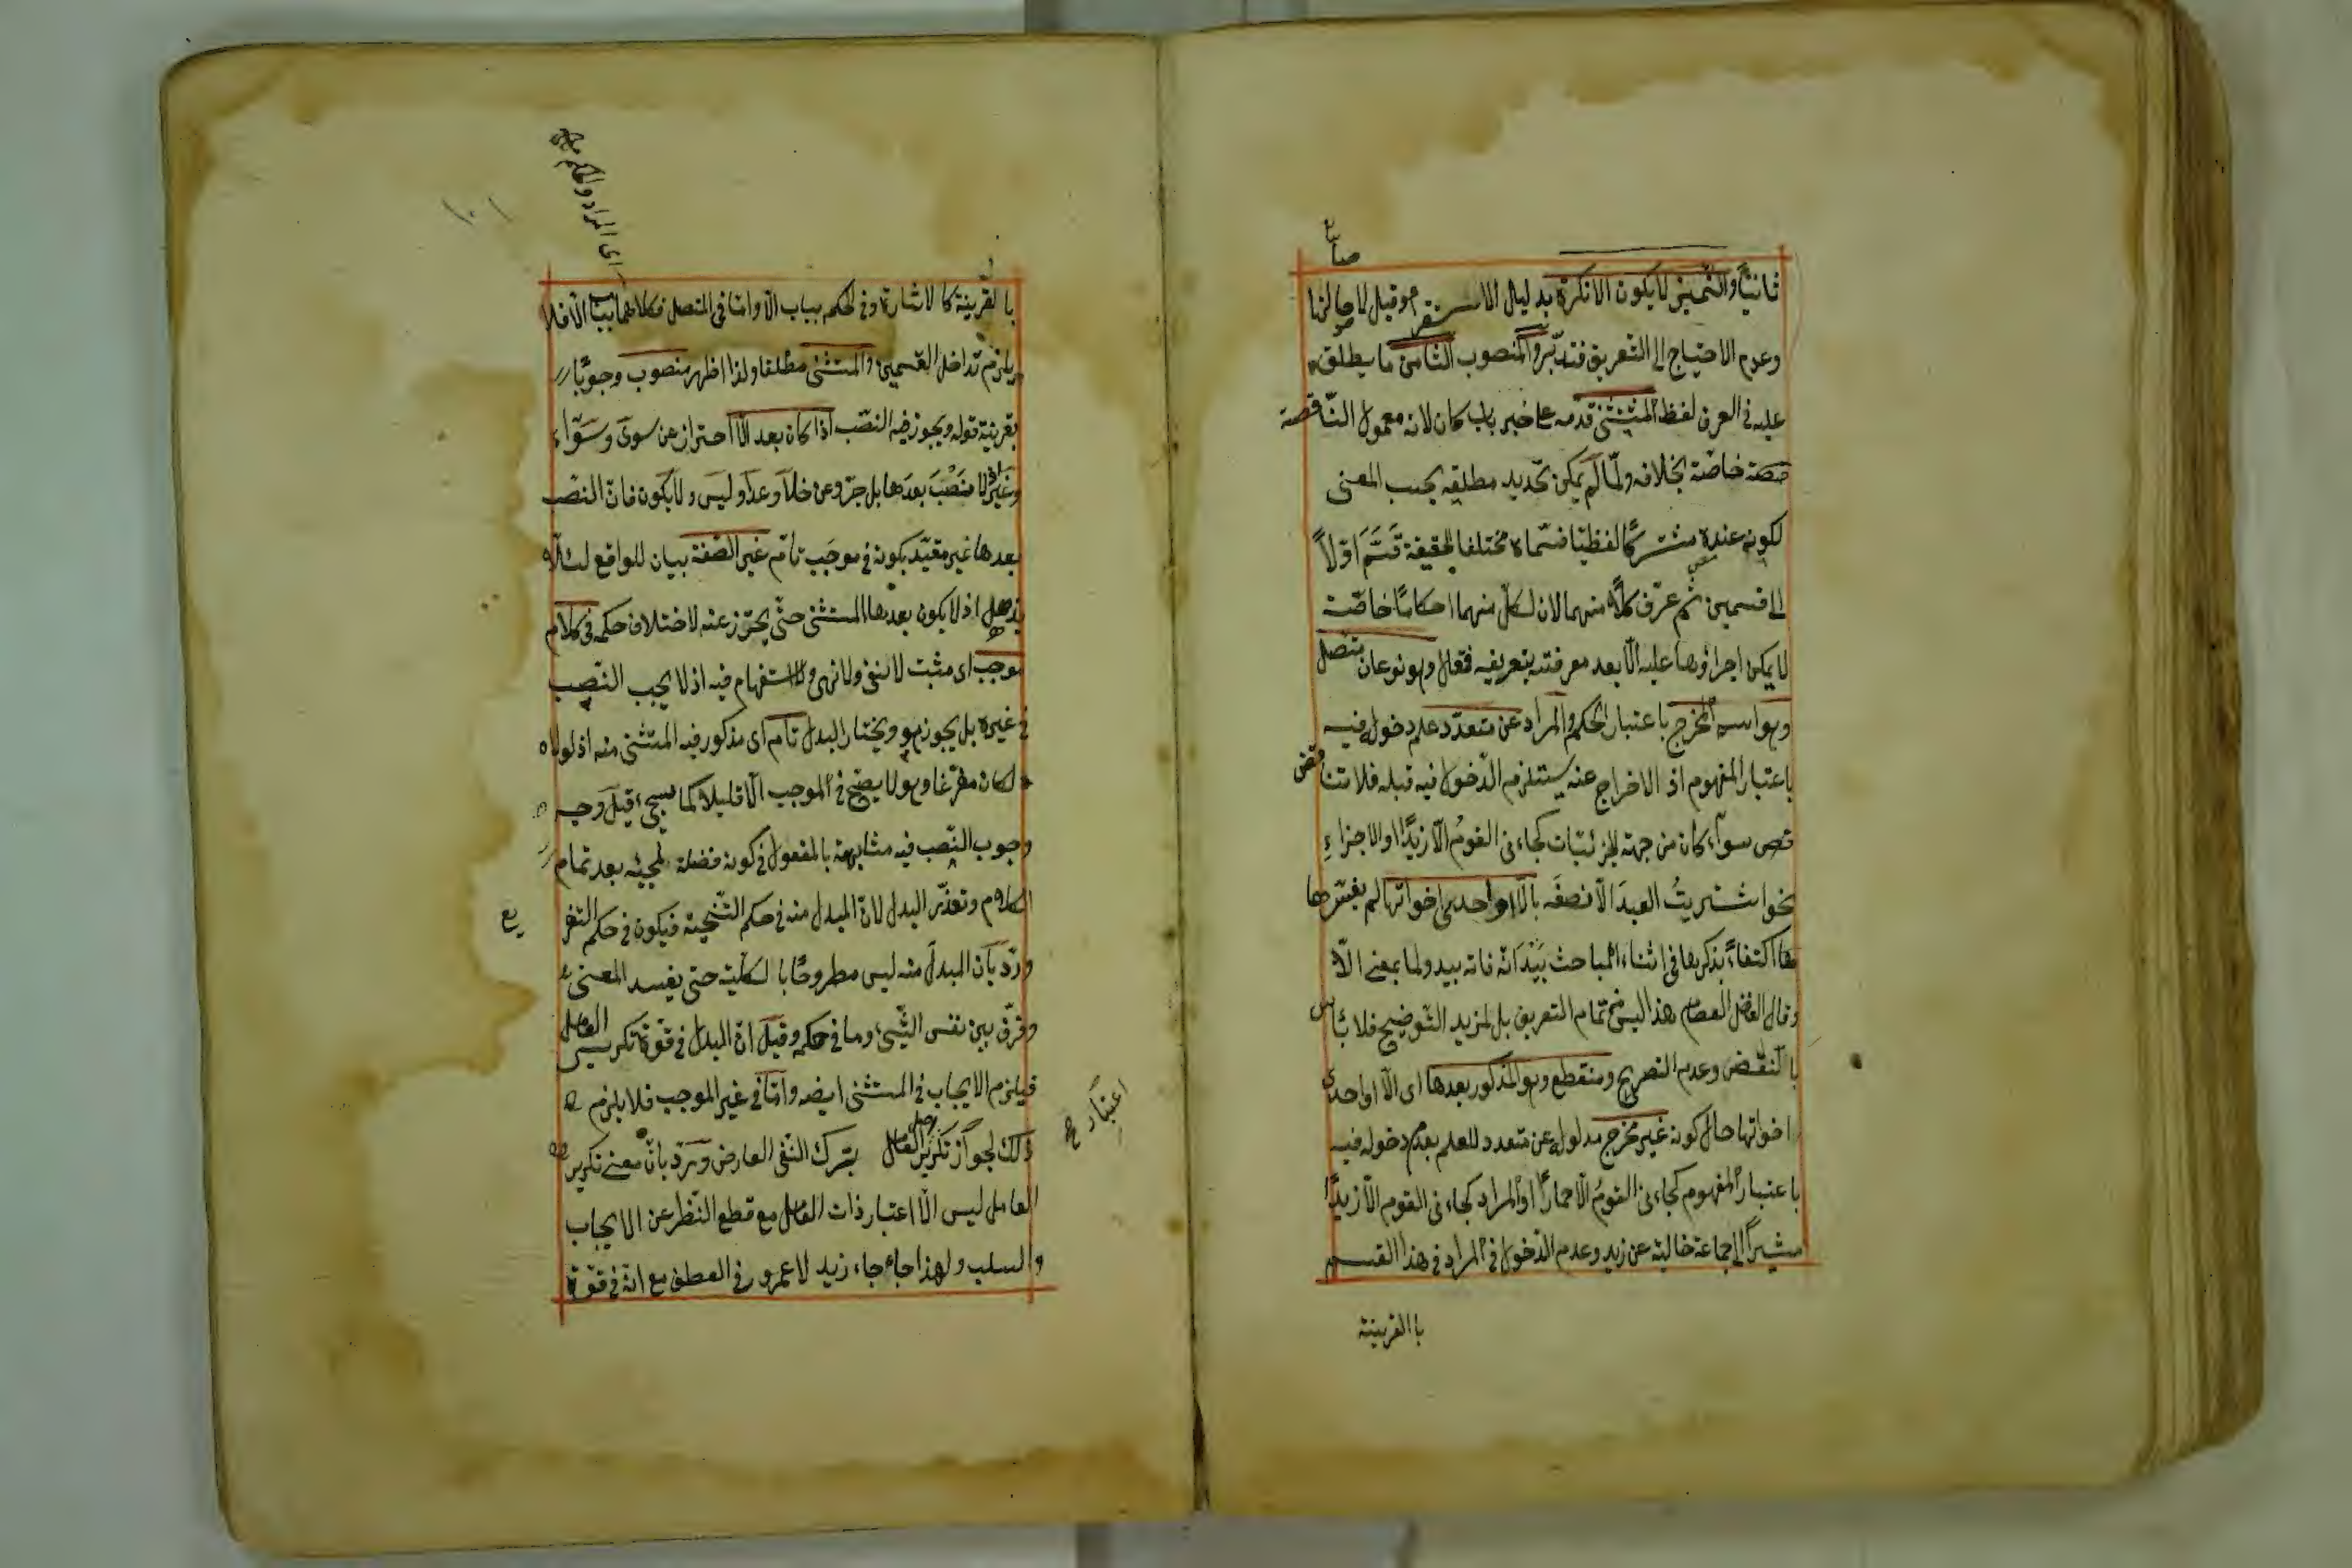 ثانيا والتميز لا يكون الا نكرة بدليل الاستقراء وقيل لاصالتها
وعدم الاحتياج الى التعريف فتدبر والمنصوب الثامن ما يطلق
عليه في العرف لفظ المستثنى قدمه على خبر باب كان لانه معمول الناقصة
خاصة بخلافه ولما لم يمكن تحديد مطلقه بحسب المعنى
لكونه عنده مشتركا لفظيا قسماه مختلفا الحقيقة قسم اولا
الى قسمين ثم عرف كلا منهما لان لكل منهما احكاما خاصة
لا يمكن اجراؤها عليه الا بعد معرفته بتعريفه فقال وهو نوعان متصل
وهو اسم المخرج باعتبار الحكم والمراد عن متعدد علم دخوله فيه
باعتبار المفهوم اذ الاخراج عنه يستلزم الدخول فيه قبله فلا تنا
قض سواء كان من جهة الجزئيات كجاءنى القوم الا زيدا او الاجزاء
نحو اشتريت العبد الا نصفه بالا او احدى اخواتها لم يفسرها
هنا اكتفاء بذكرها فى اثناء المباحث بيد انه فاته بيد ولما بمعنى الا
وقال الفاضل العصام هذا ليس من تمام التعريف بل لمزيد التوضيح فلا بأس
بالنقض وعدم التصريح ومنقطع وهو المذكور بعدها اى الا او احدى
اخواتها حال كونه غير مخرج مدلوله عن متعدد للعلم بعدم دخوله فيه
باعتبار المفهوم كجاءنى القوم الا حمارا او المراد كجاءنى القوم الا زيدا
مشيرا الى جماعة خالية عن زيد وعدم الدخول فى المراد فى هذا القسم
با القرينة
اى المراد والحكم
بالقرينة كالاشارة وفى الحكم بباب الا واما فى المتصل فكلاهما بباب الا فلا
يلزم تداخل القسمين والمستثنى مطلقا ولذا اظهر منصوب وجوبا
بقرينة قوله ويجوز فيه النصب اذا كان بعد الا احتراز عن سوى وسواء
وغير اذ لا منصب بعدها بل جر وعن خلا وعدا وليس ولا يكون فان النصب
بعدها غير مقيد بكونه فى موجب تام غير الصفة بيان للواقع لئلا
يذهل اذ لا يكون بعدها المستثنى حتى يحترز عنه لاختلاف حكمه فى كلام
موجب اى مثبت لا نفى ولا نهى ولا استفهام فيه اذ لا يجب النصب
فى غيره بل يجوز هو ويختار البدل تام اى مذكور فيه المستثنى منه اذ لولاه
لكان مفرغا وهو لا يصح فى الموجب الا قليلا كما سيجىء قيل وجه
وجوب النصب فيه مشابهة بالمفعول فى كونه فضلة لمجيئه بعد تمام
الكلام وتعذر البدل لان المبدل منه فى حكم التنحية فيكون فى حكم التفر
يع
ورد بان المبدل منه ليس مطروحا با لكلية حتى يفسد المعنى
وفرق بين نفس الشىء وما فى حكمه وقيل ان البدل فى قوة تكرير العامل
فيلزم الايجاب فى المستثنى ايضه واما فى غير الموجب فلا يلزم
ذلك لجواز تكرير العامل بترك النفى العارض ورد بان معنى تكرير
العامل ليس الا اعتبار ذات العامل مع قطع النظر عن الايجاب
والسلب ولهذا جاء جاء زيد لا عمرو فى العطف مع انه فى قوة